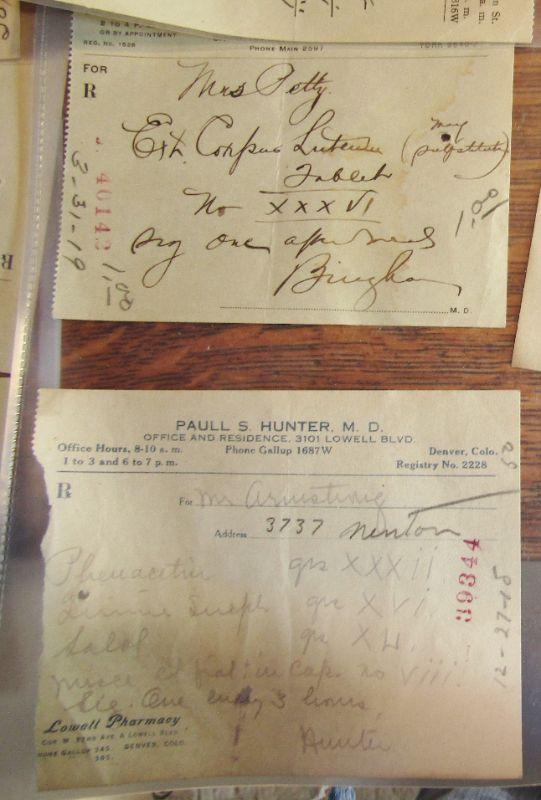 2 TO 4 P.
OR BY APPOINTMENT
REG. NO. 1528
PHONE MAIN 2597
FOR
Mrs Petty
R
Ext. Corpus Luteum (may substitute)
Tablets
No XXXVI
Sig one after meals
Bingham
M. D.
40143
3-31-19
1.00
PAULL S. HUNTER, M. D.
OFFICE AND RESIDENCE, 3101 LOWELL BLVD.
Office Hours, 8-10 a. m. Phone Gallup 1687W Denver, Colo.
1 to 3 and 6 to 7 p. m. Registry No. 2228
R
For Mr Armstrong
Address 3737 Newton
Phenacetin grs XXXii
Quinine Sulph grs XVI
Salol grs XL
misce et in cap. no viii
Sig. One every 3 hours
Hunter
39344
12-27-18
Lowell Pharmacy
COR W. 32ND AVE. & LOWELL BLVD.
PHONE GALLUP 345. DENVER, COLO.
385.